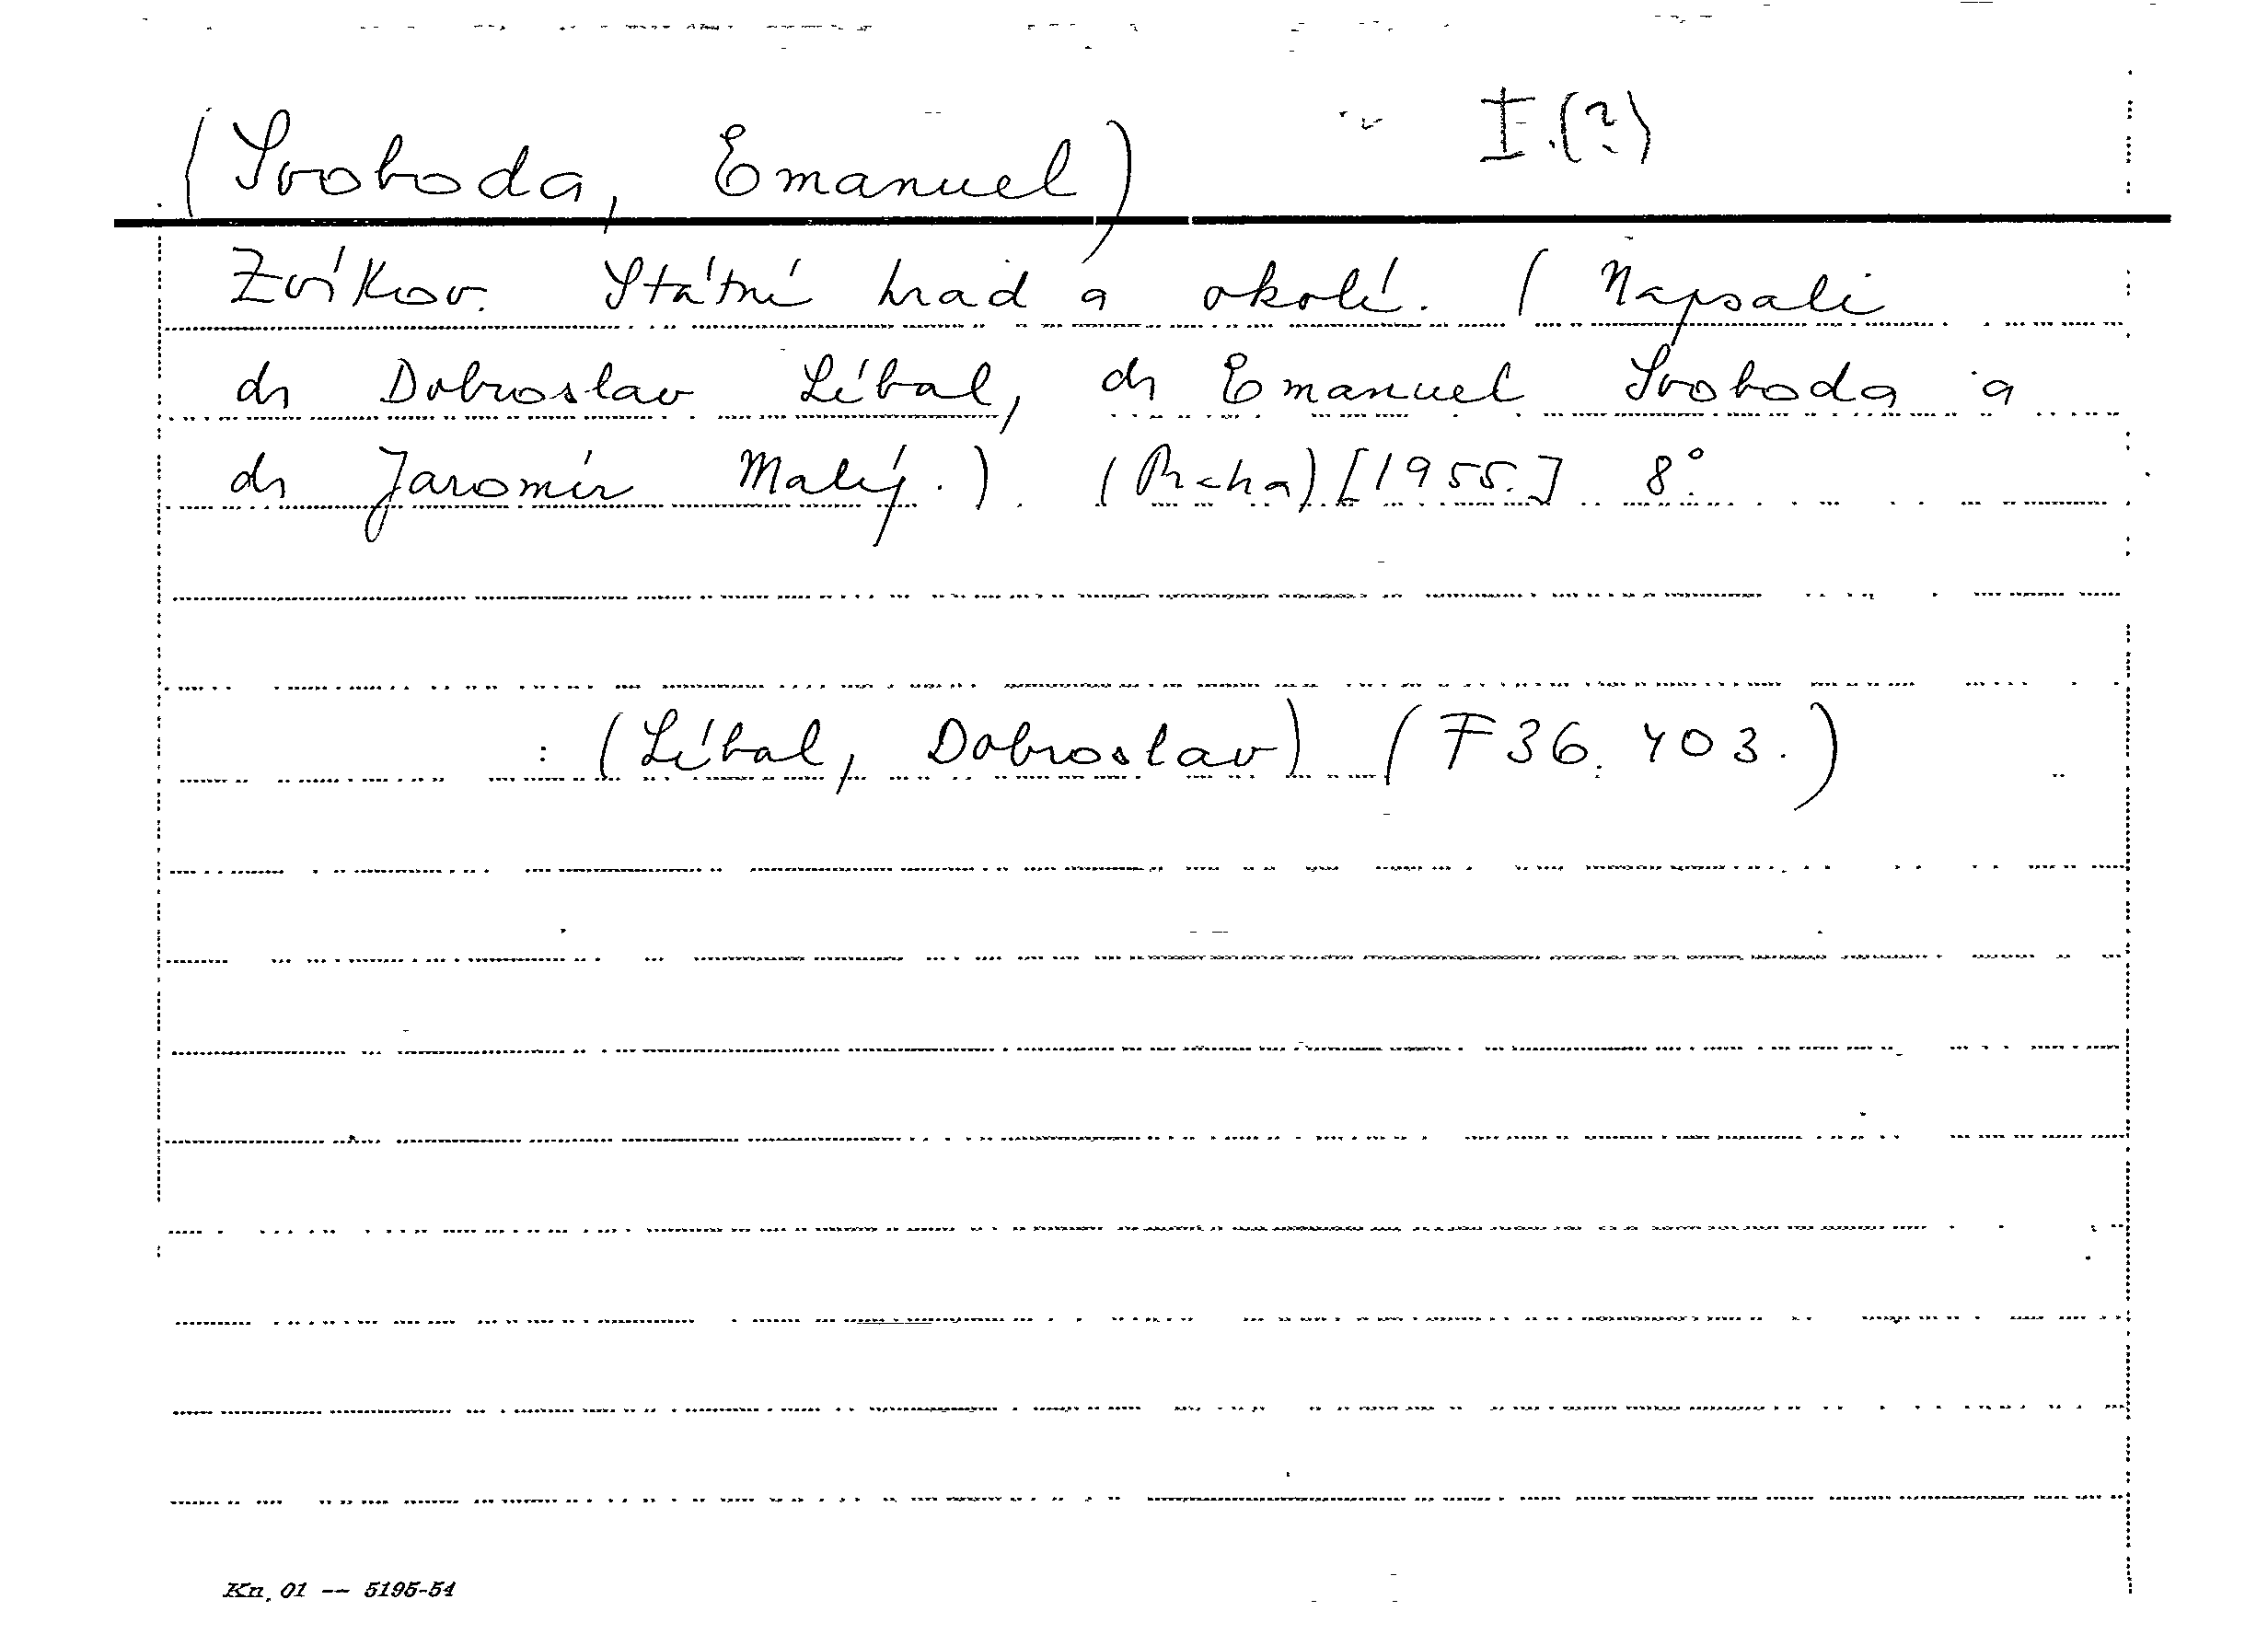 (Svoboda, Emanuel) I.(?)
Zvíkov. Státní hrad a okolí. (Napsali
dr Dobroslav Líbal, dr Emanuel Svoboda a
dr Jaromír Malý.) (Praha) [1955.] 8°.
: (Líbal, Dobroslav) (F 36.403.)
Kn. 01 -- 5195-54